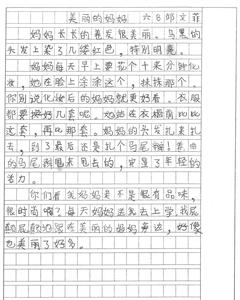 美丽的妈妈 六8邱文菲
妈妈长长的卷发很美丽。乌黑的
头发上染了几缕红色，特别明亮。
妈妈每天早上要花个十来分钟化
妆，她在脸上涂涂这个，抹抹那个。
你别说化妆后的妈妈就更好看。衣服
都要换好几套呢。她站在衣橱前比比
这套，再比那套。妈妈的头发扎来扎
去，到了最后还是扎个马尾辫！弯曲
的马尾甩来甩去的，也显了年轻的
活力。
你们看我妈妈是不是很有品味，
很时尚啊？每天妈妈送我去上学，我屁
颠屁颠地跟在美丽的妈妈旁边，好像
也美丽了好多。